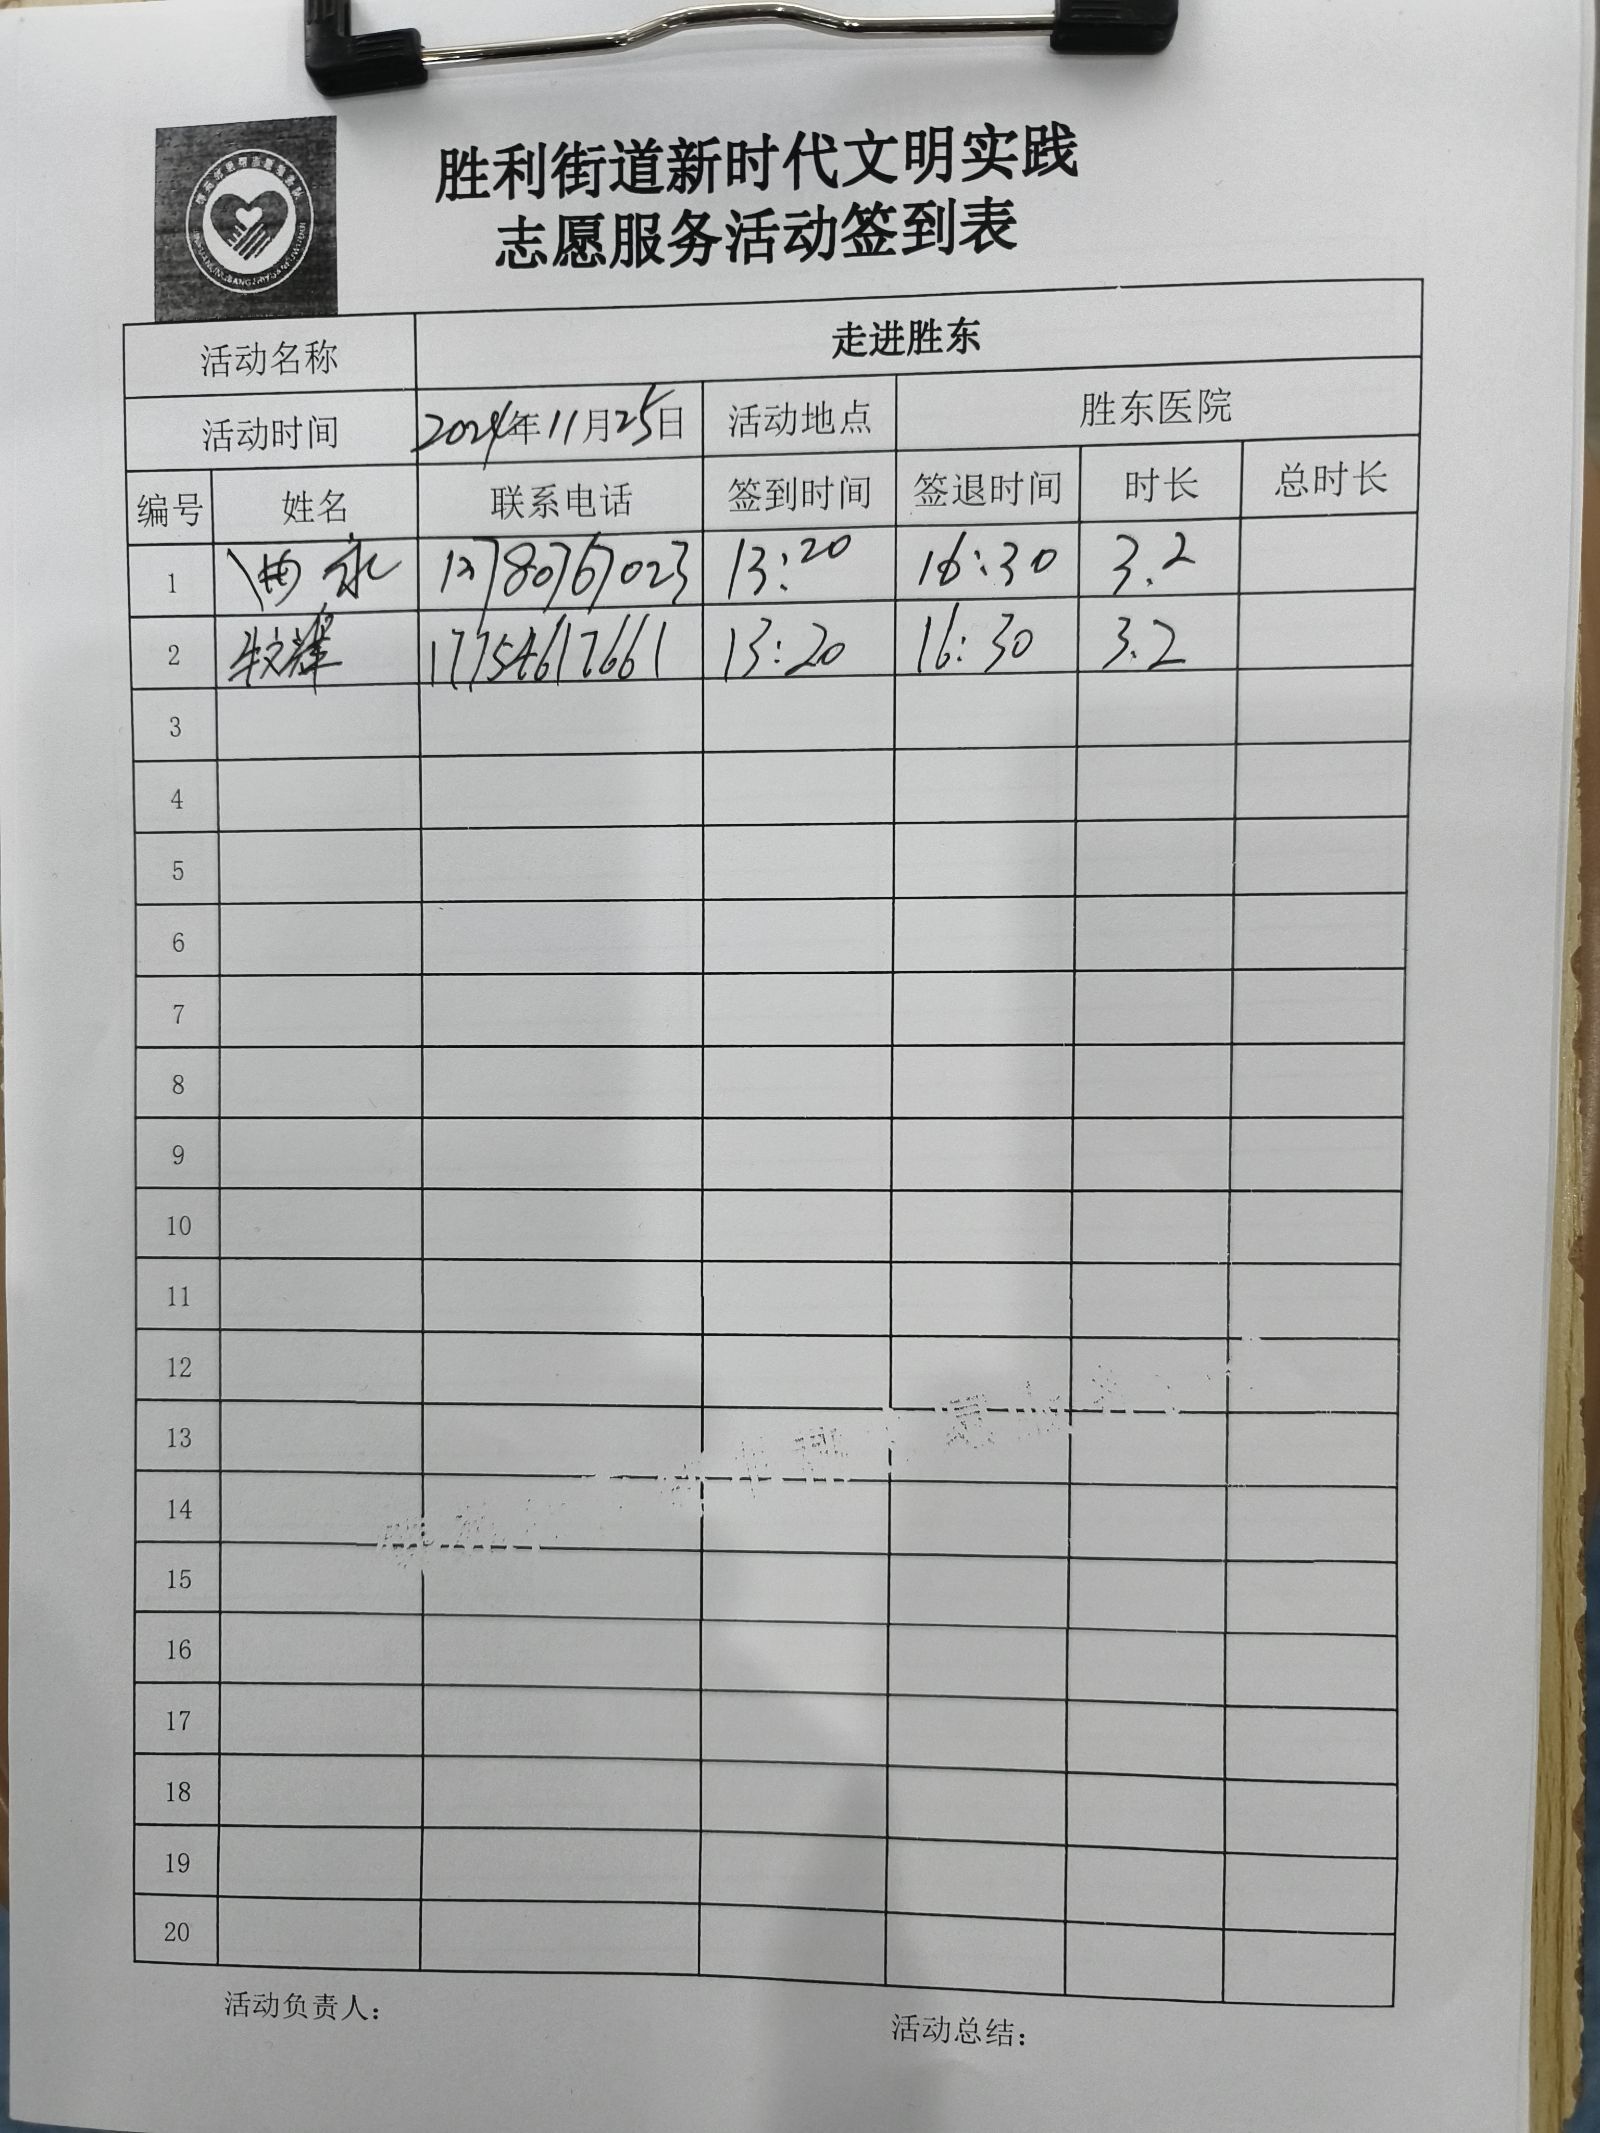 胜利街道新时代文明实践
志愿服务活动签到表
活动名称 走进胜东
活动时间 2024年11月25日 活动地点 胜东医院
编号 姓名 联系电话 签到时间 签退时间 时长 总时长
1 曲永 13780767023 13:20 16:30 3.2
2 17754617661 13:20 16:30 3.2
3
4
5
6
7
8
9
10
11
12
13
14
15
16
17
18
19
20
活动负责人: 活动总结: